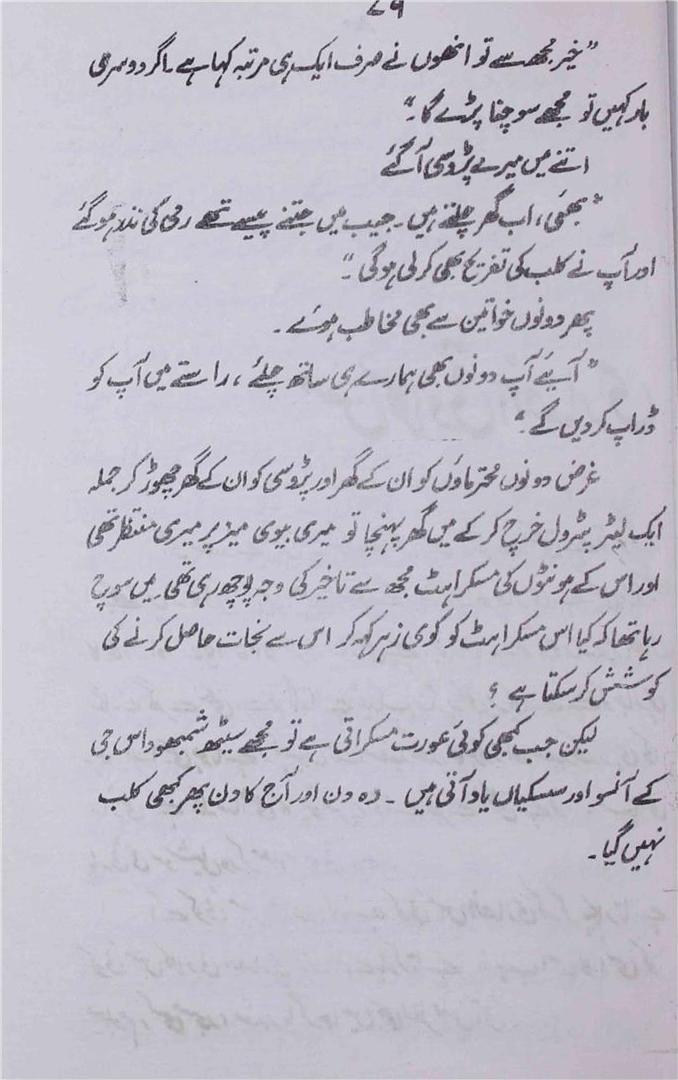 ۲۹
”خیر مجھ سے تو انھوں نے صرف ایک ہی مرتبہ کہا ہے۔ اگر دوسری
بار کہیں تو مجھے سوچنا پڑے گا۔“
اتنے میں میرے پڑوسی آ گئے
”بھئی، اب گھر چلتے ہیں۔ جیب میں جتنے پیسے تھے رمی کی نذر ہو گئے
اور آپ نے کلب کی تفریح بھی کر لی ہو گی۔“
پھر دونوں خواتین سے بھی مخاطب ہوئے۔
”آئیے آپ دونوں بھی ہمارے ہی ساتھ چلئے، راستے میں آپ کو
ڈراپ کر دیں گے۔“
غرض دونوں محترماؤں کو ان کے گھر اور پڑوسی کو ان کے گھر چھوڑ کر جملہ
ایک لیٹر پٹرول خرچ کر کے میں گھر پہنچا تو میری بیوی میز پر میری منتظر تھی
اور اس کے ہونٹوں کی مسکراہٹ مجھ سے تاخیر کی وجہ پوچھ رہی تھی۔ میں سوچ
رہا تھا کہ کیا اس مسکراہٹ کو کوئی زہر کہہ کر اس سے نجات حاصل کرنے کی
کوشش کر سکتا ہے ؟
لیکن جب کبھی کوئی عورت مسکراتی ہے تو مجھے سیٹھ شمبھو داس جی
کے آنسو اور سسکیاں یاد آتی ہیں۔ وہ دن اور آج کا دن پھر کبھی کلب
نہیں گیا۔